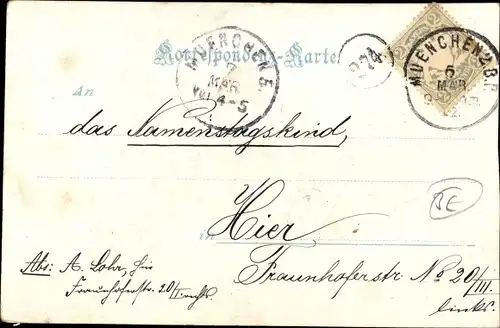 Correspondenz-Karte
MUENCHEN 5.
7
MAR
4-5
MUENCHEN 2 B.P.
6
MAR
2
An
das Namenstagskind,
BE
in Hier
Fraunhoferstr. No 20/III.
links.
Abs: A. Lohr, hier
Fraunhoferstr. 20/I rechts.